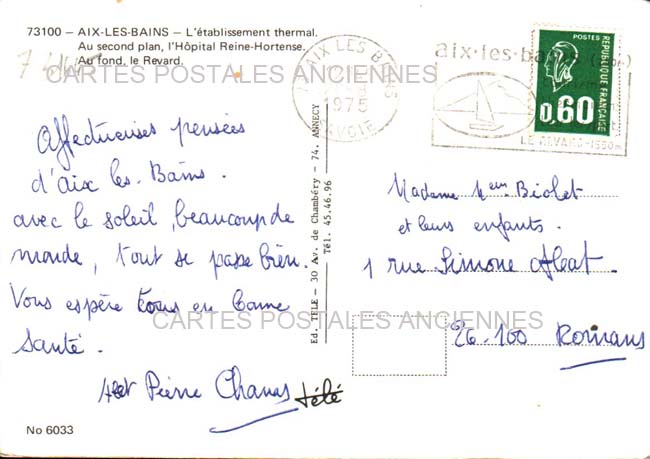 73100 – AIX-LES-BAINS – L'établissement thermal.
Au second plan, l'Hôpital Reine-Hortense.
Au fond, le Revard.
CARTES POSTALES ANCIENNES
Affectueuses pensées
d'Aix les Bains.
avec le soleil, beaucoup de
monde, tout se passe bien.
Vous espère tous en bonne
santé.
Pierre Chanas
Télé
No 6033
Ed. TELE – 30 Av. de Chambéry – 74. ANNECY
Tél. 45.46.96
AIX LES BAINS
1975
SAVOIE
aix-les-bains
LE REVARD-1550m
POSTES
REPUBLIQUE FRANÇAISE
0,60
Madame Mme Biolet
et leurs enfants.
1 rue Simone Abat
26-100 Romans
CARTES POSTALES ANCIENNES